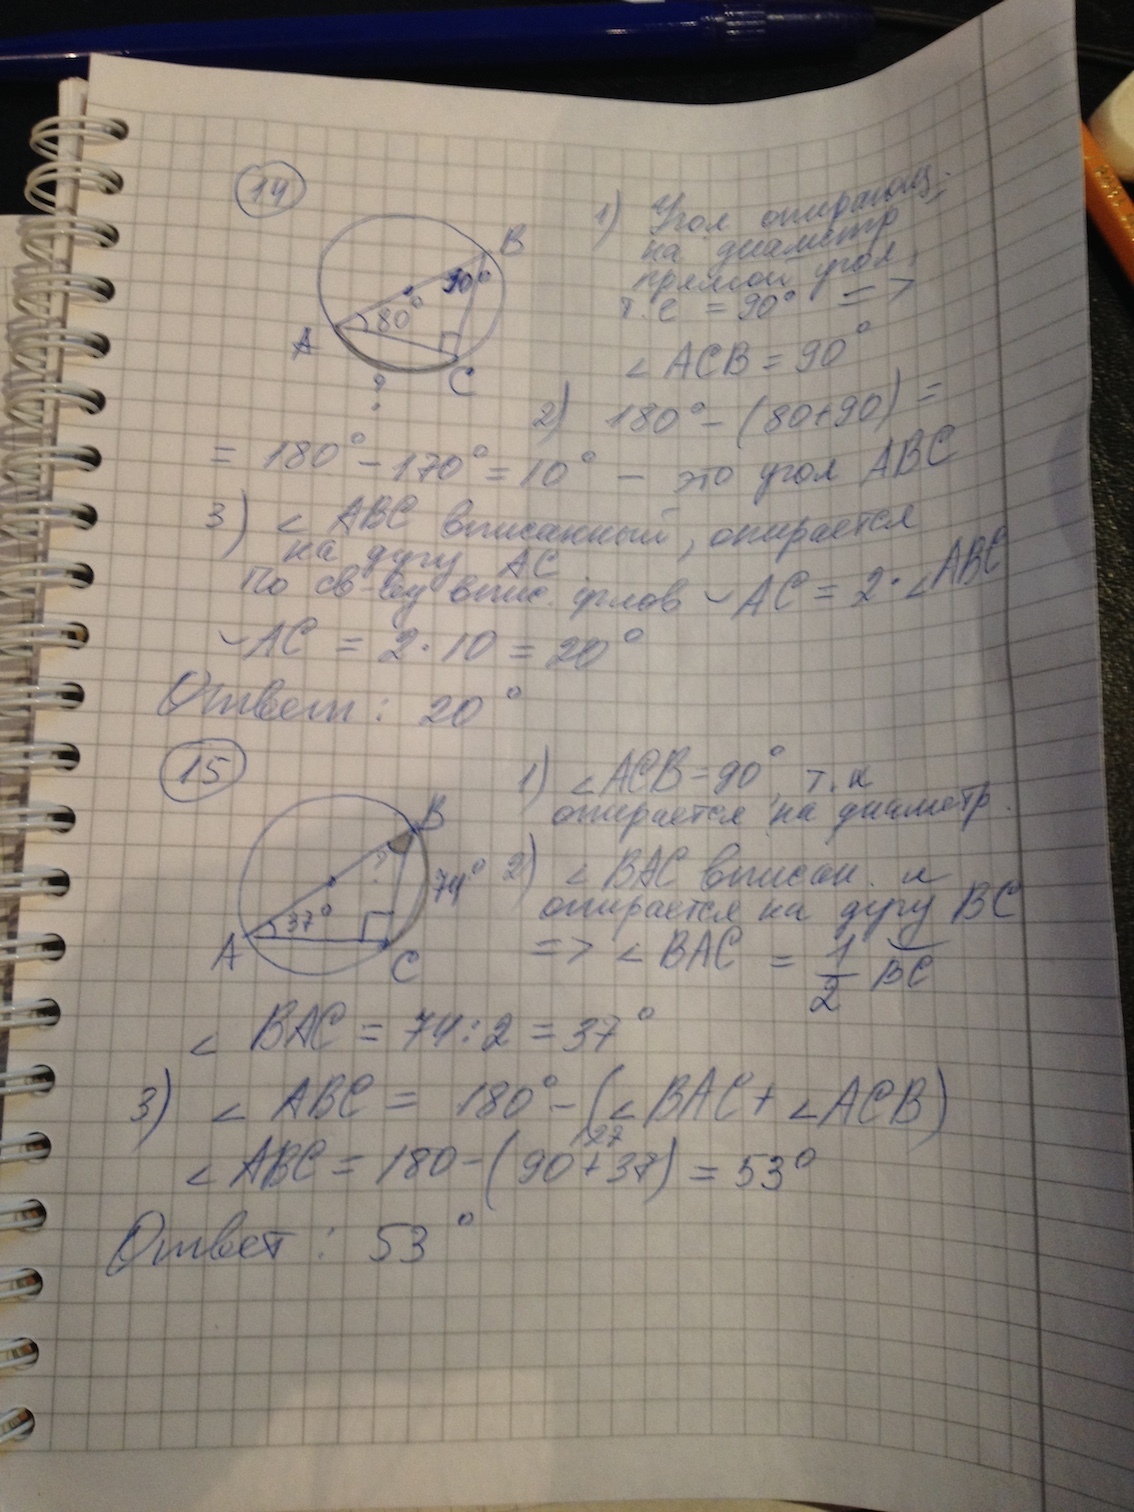 14
B
90°
80°
A
C
?
1) Угол опирающ.
на диаметр
прямой угол,
т.е = 90° =>
∠ACB = 90°
2) 180° - (80+90) =
= 180° - 170° = 10° - это угол ABC
3) ∠ ABC вписанный, опирается
на дугу AC
По св-ву впис. углов ◡AC = 2·∠ABC
◡AC = 2·10 = 20°
Ответ: 20°
15
B
?
74°
37°
A
C
1) ∠ACB = 90°, т.к
опирается на диаметр.
2) ∠BAC вписан. и
опирается на дугу BC
=> ∠BAC = 1/2 BC
∠ BAC = 74:2 = 37°
3) ∠ ABC = 180° - (∠BAC + ∠ACB)
127
∠ABC = 180 - (90+37) = 53°
Ответ: 53°